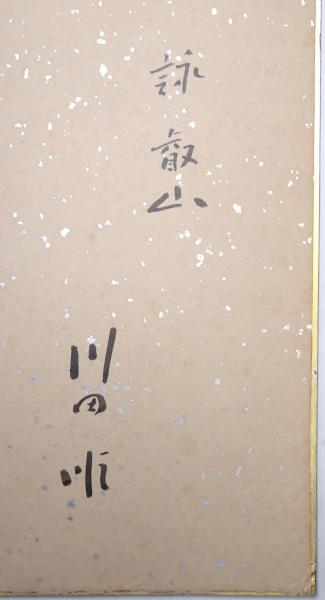 詠叡山
川田順